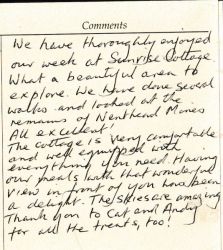 Comments
We have thoroughly enjoyed
our week at Sunrise Cottage.
What a beautiful area to
explore. We have done several
walks and looked at the
remains of Nenthead Mines
All excellent!
The cottage is very comfortable
and well equipped with
everything you need. Having
our meals with that wonderful
view in front of you has been
a delight. The skies are amazing
Thank you to Cat and Andy
for all the treats, too!